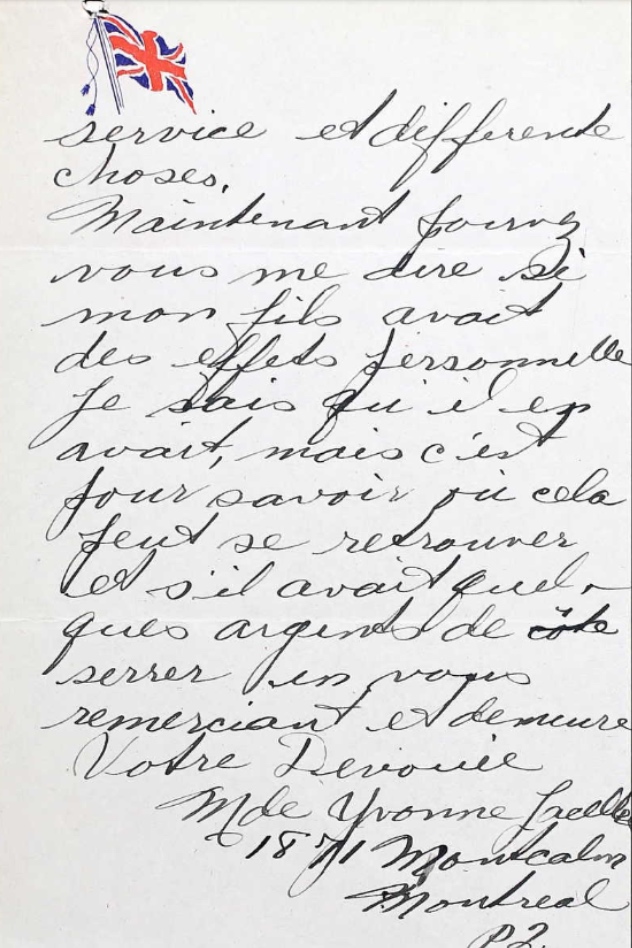 service et differente
choses.
Maintenant pouvez
vous me dire si
mon fils avait
des effets personnelle
Je sais qu'il en
avait, mais c'est
pour savoir où cela
peut se retrouver
et s'il avait quel-
ques argents de côte
serrer en vous
remerciant et demeure
Votre Devouée
Mde Yvonne
1871 Montcalm
Montreal
P.2.